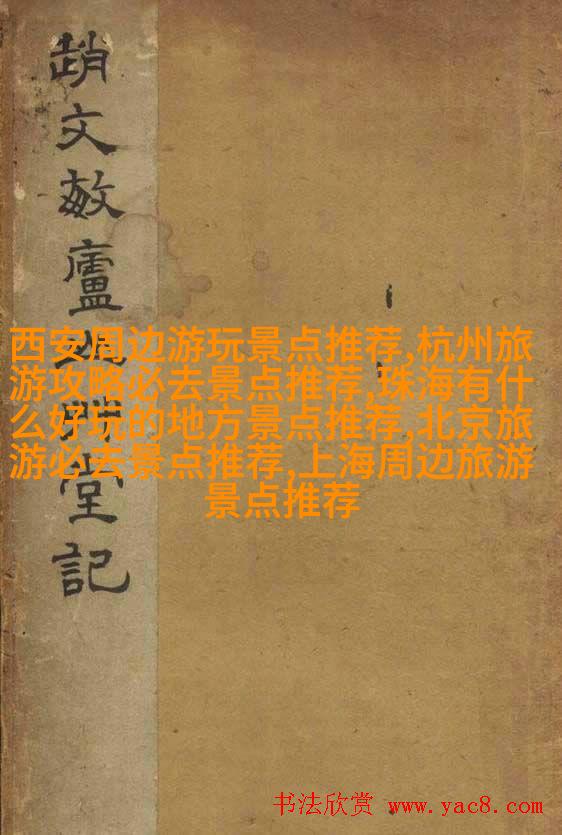 趙文敏廬山艸堂記
西安周边游玩景点推荐,杭州旅
游攻略必去景点推荐,珠海有什
么好玩的地方景点推荐,北京旅
游必去景点推荐,上海周边旅游
景点推荐
书法欣赏 www.yac8.com